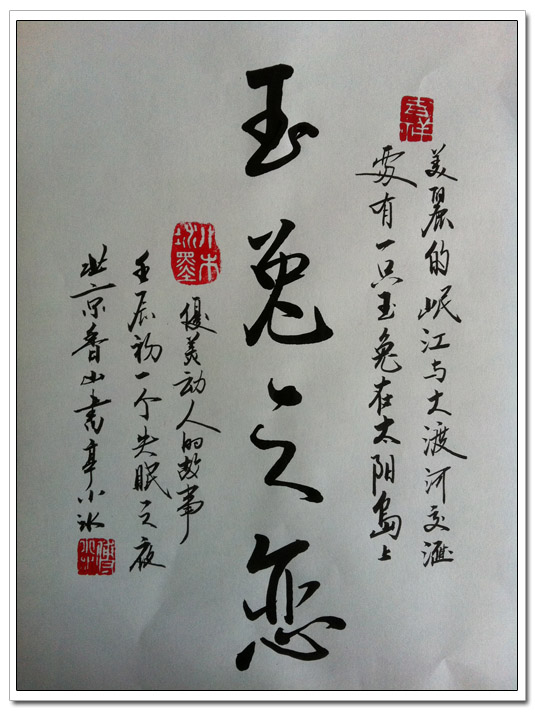 美麗的岷江与大渡河交滙
處有一只玉兔在太阳島上
玉兔之恋
優美动人的故事
壬辰初一个失眠之夜
北京香山書亭小冰